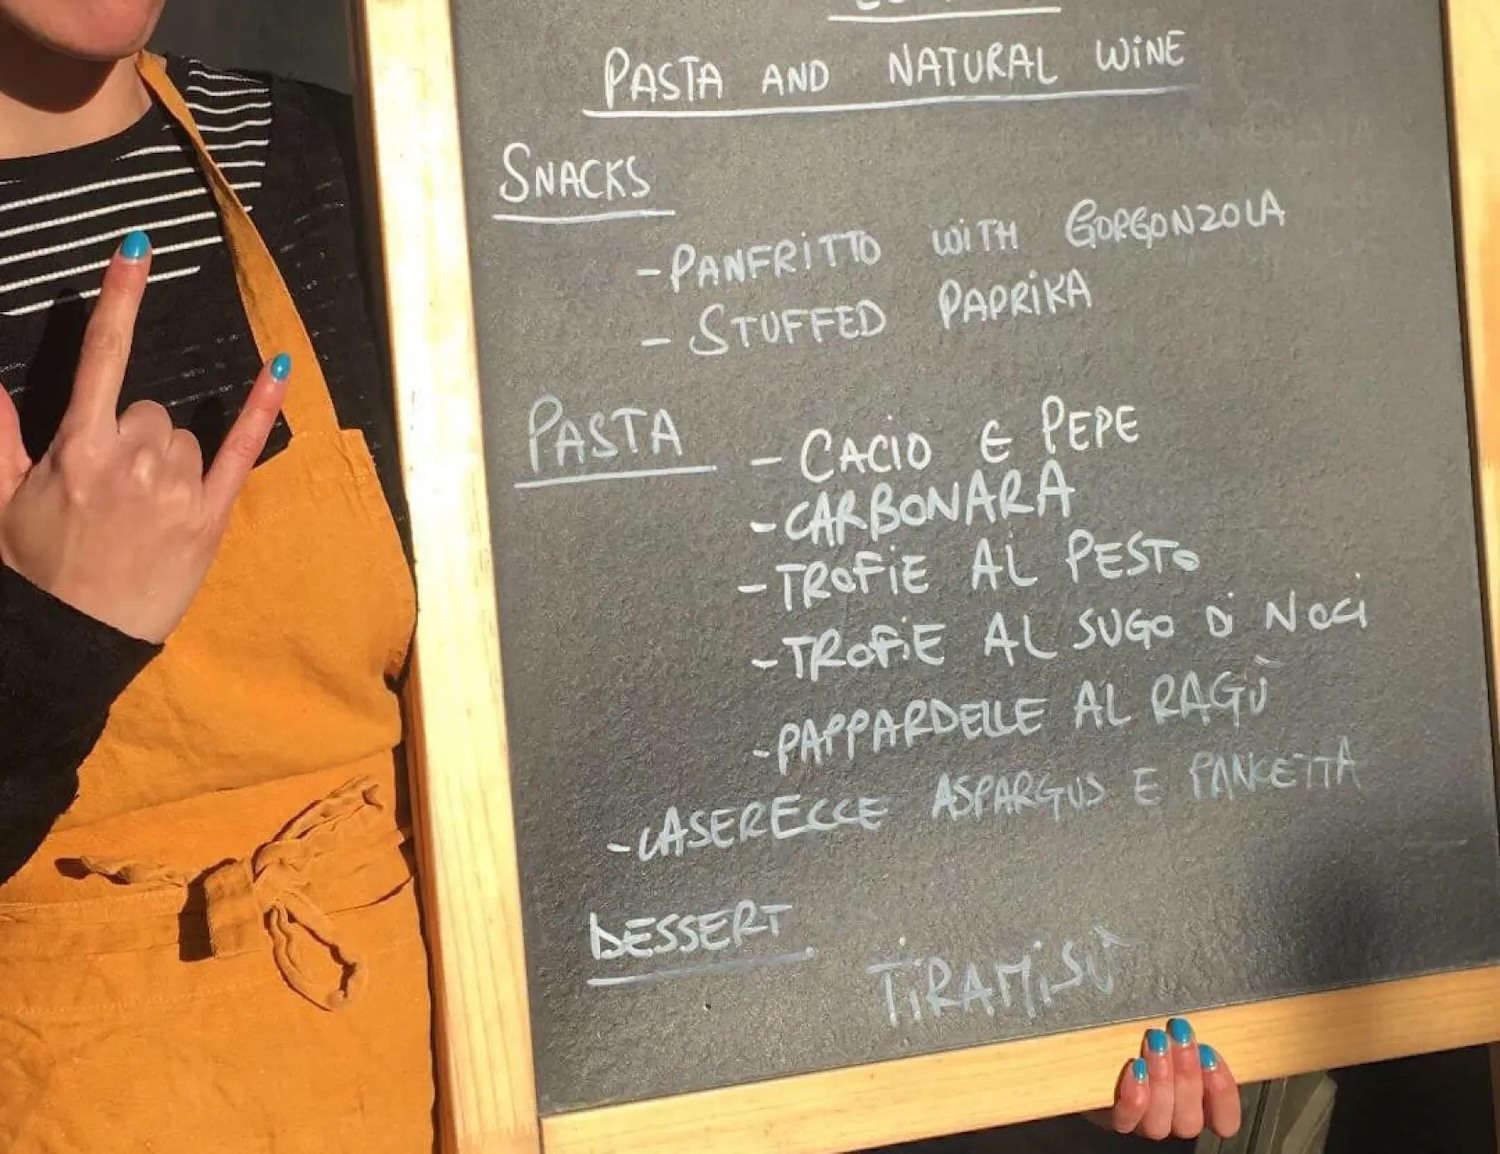 PASTA AND NATURAL WiNE
SNACKS
- PANFRiTTO WiTH GORGONZOLA
- STUFFED PAPRiKA
PASTA - CACiO E PEPE
- CARBONARA
- TROFiE AL PESTO
- TROFiE AL SUGO Di NOCi
- PAPPARDELLE AL RAGÙ
- CASERECCE ASPARGUS E PANCETTA
DESSERT
TiRAMiSÙ